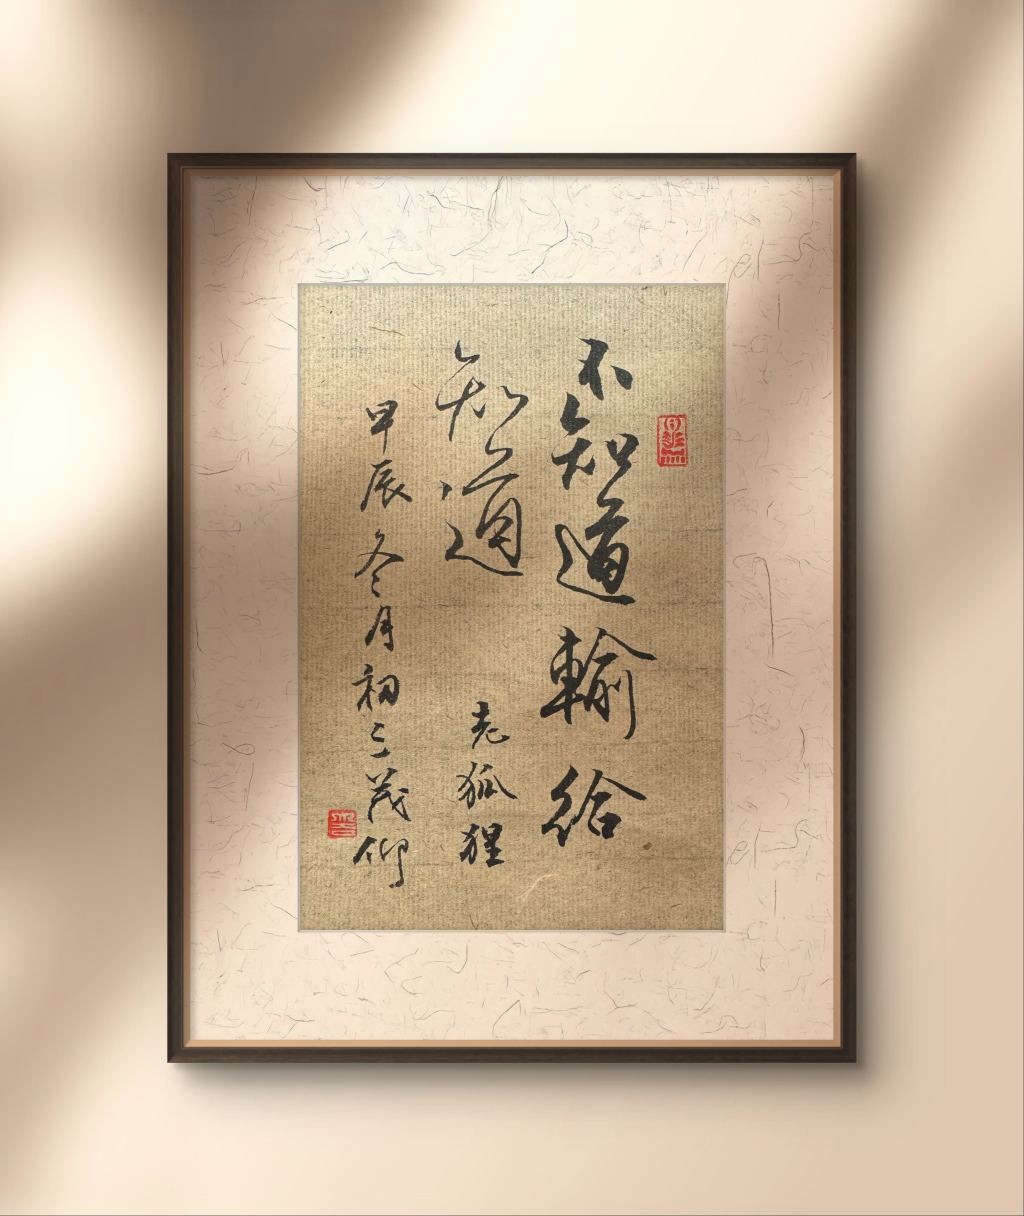 不知道輸給
知道
老狐狸
甲辰冬月初三茂仰